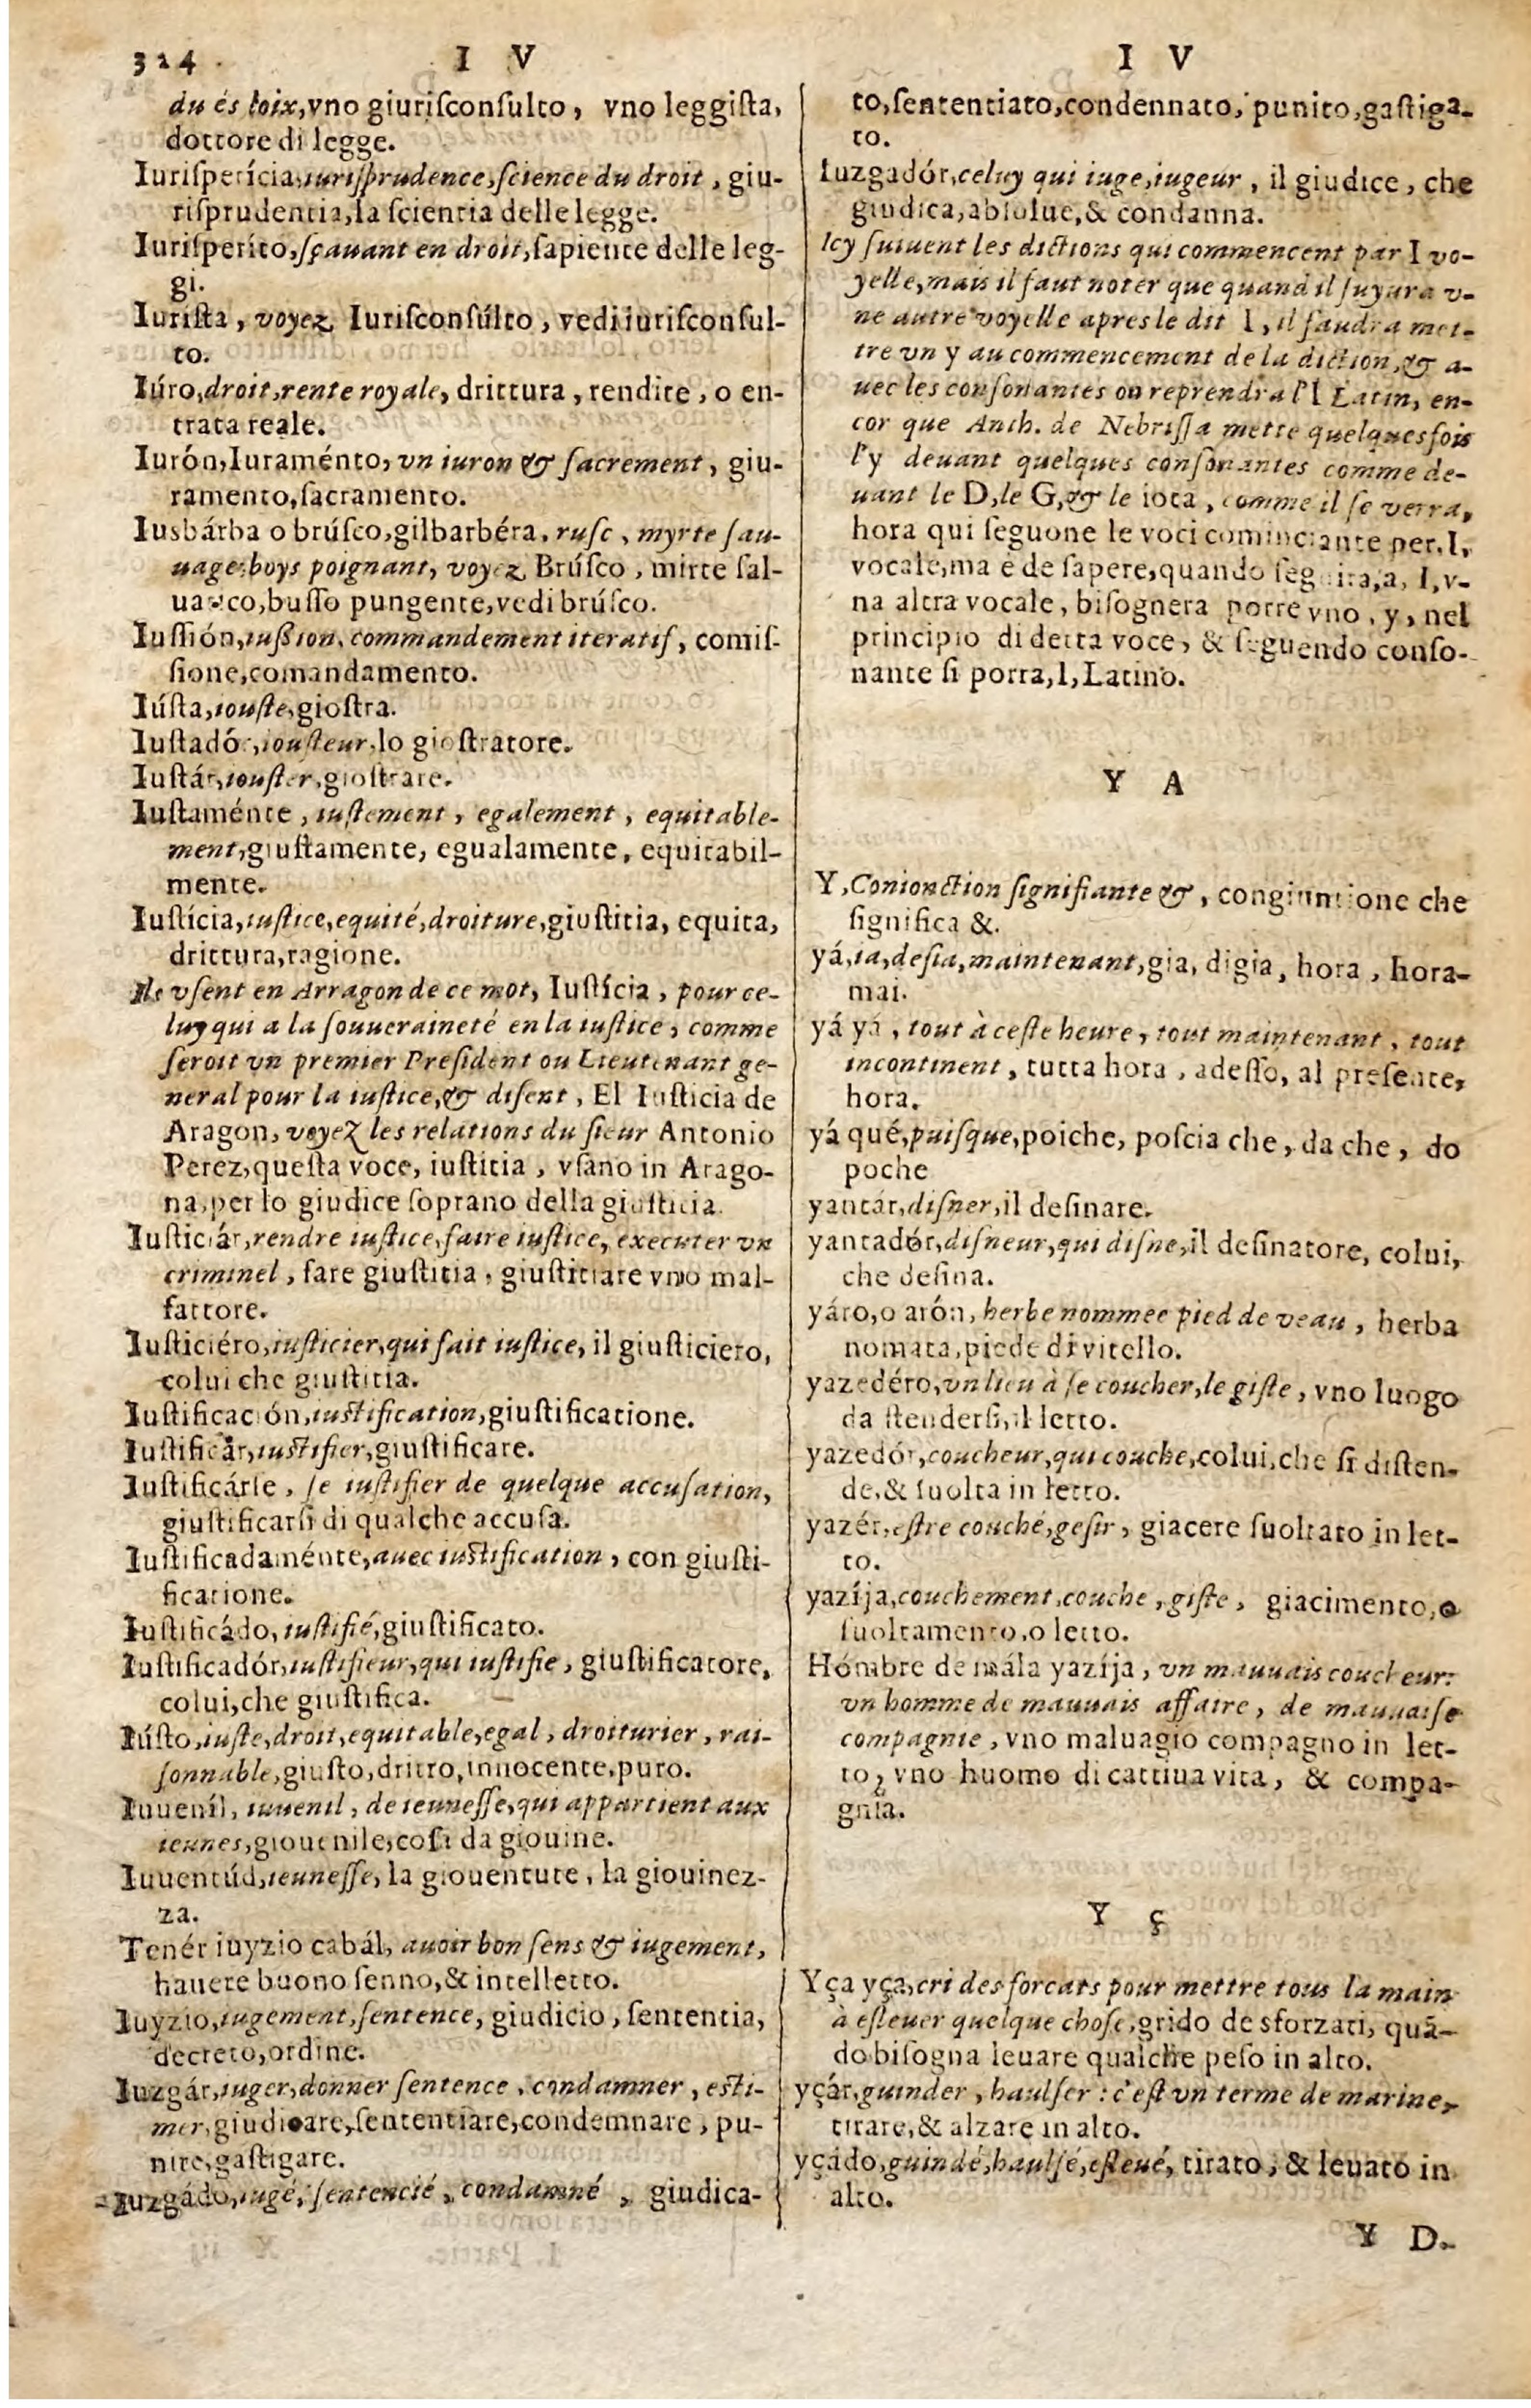 324 I V
du és loix, vno giuriſconſulto, vno leggiſta,
dottore di legge.
Iuriſperícia, iuriſprudence, ſcience du droit, giu-
riſprudentia, la ſcientia delle legge.
Iuriſperíto, ſçauant en droit, ſapiente delle leg-
gi.
Iuriſta, voyez Iuriſconſúlto, vedi iuriſconſul-
to.
Iúro, droit, rente royale, drittura, rendite, o en-
trata reale.
Iurón, Iuraménto, vn iuron & ſacrement, giu-
ramento, ſacramento.
Iusbárba o brúſco, gilbarbéra, ruſc, myrte ſau-
uage, buys poignant, voyez Brúſco, mirte ſal-
uatico, buſſo pungente, vedi brúſco.
Iuſſión, iußion, commandement iteratif, comiſ-
ſione, comandamento.
Iúſta, iouſte, gioſtra.
Iuſtadór, iouſteur, lo gioſtratore.
Iuſtár, iouſter, gioſtrare.
Iuſtaménte, iuſtement, egalement, equitable-
ment, giuſtamente, egualamente, equitabil-
mente.
Iuſtícia, iuſtice, equité, droiture, giuſtitia, equita,
drittura, ragione.
Ils vſent en Arragon de ce mot, Iuſtícia, pour ce-
luy qui a la ſouueraineté en la iuſtice, comme
ſeroit vn premier Preſident ou Lieutenant ge-
neral pour la iuſtice, & diſent, El Iuſticia de
Aragon, voyez les relations du ſieur Antonio
Perez, queſta voce, iuſtitia, vſano in Arago-
na, per lo giudice ſoprano della giuſticia.
Iuſticiár, rendre iuſtice, faire iuſtice, executer vn
criminel, fare giuſtitia, giuſtitiare vno mal-
fattore.
Iuſticiéro, iuſticier, qui fait iuſtice, il giuſticiero,
colui che giuſtitia.
Iuſtificación, iuſtification, giuſtificatione.
Iuſtificár, iuſtifier, giuſtificare.
Iuſtificárſe, ſe iuſtifier de quelque accuſation,
giuſtificarſi di qualche accuſa.
Iuſtificadaménte, auec iuſtification, con giuſti-
ficatione.
Iuſtificádo, iuſtifié, giuſtificato.
Iuſtificadór, iuſtifieur, qui iuſtifie, giuſtificatore,
colui, che giuſtifica.
Iúſto, iuſte, droit, equitable, egal, droiturier, rai-
ſonnable, giuſto, dritto, innocente, puro.
Iuueníl, iuuenil, de ieuneſſe, qui appartient aux
ieunes, giouenile, coſi da giouine.
Iuuentúd, ieuneſſe, la giouentute, la giouinez-
za.
Tenér iuyzio cabál, auoir bon ſens & iugement,
hauere buono ſenno, & intelletto.
Iuyzio, iugement, ſentence, giudicio, ſententia,
decreto, ordine.
Iuzgár, iuger, donner ſentence, condamner, eſti-
mer, giudicare, ſententiare, condemnare, pu-
nire, gaſtigare.
Iuzgádo, iugé, ſentencié, condamné, giudica-
I V
to, ſententiato, condennato, punito, gaſtiga-
to.
Iuzgadór, celuy qui iuge, iugeur, il giudice, che
giudica, abſolue, & condanna.
Icy ſuiuent les dictions qui commencent par I vo-
yelle, mais il faut noter que quand il ſuyura v-
ne autre voyelle apres le dit I, il faudra met-
tre vn y au commencement de la diction, & a-
uec les conſonantes on reprendra l'I Latin, en-
cor que Anth. de Nebriſſa mette quelquesfois
l'y deuant quelques conſonantes comme de-
uant le D, le G, & le iota, comme il ſe verra,
hora qui ſeguone le voci cominciante per, I,
vocale, ma e de ſapere, quando ſeguira, a, I, v-
na altra vocale, biſognera porre vno, y, nel
principio di detta voce, & ſeguendo conſo-
nante ſi porra, I, Latino.
Y A
Y, Conionction ſignifiante &, congiuntione che
ſignifica &.
yá, ia, deſia, maintenant, gia, digia, hora, hora-
mai.
yá yá, tout à ceſte heure, tout maintenant, tout
incontinent, tutta hora, adeſſo, al preſente,
hora.
yá qué, puiſque, poiche, poſcia che, da che, do
poche
yantár, diſner, il deſinare.
yantadór, diſneur, qui diſne, il deſinatore, colui,
che deſina.
yáro, o arón, herbe nommee pied de veau, herba
nomata, piede di vitello.
yazedéro, vn lieu à ſe coucher, le giſte, vno luogo
da ſtenderſi, il letto.
yazedór, coucheur, qui couche, colui, che ſi diſten-
de, & ſuolta in letto.
yazér, eſtre couché, geſir, giacere ſuoltato in let-
to.
yazíja, couchement, couche, giſte, giacimento, o
ſuoltamento, o letto.
Hómbre de mála yazíja, vn mauuais coucheur:
vn homme de mauuais affaire, de mauuaiſe
compagnie, vno maluagio compagno in let-
to, vno huomo di cattiua vita, & compa-
gnia.
Y ç
Yça yça, cri des forcats pour mettre tous la main
à eſleuer quelque choſe, grido de sforzati, quã-
do biſogna leuare qualche peſo in alto.
yçár, guinder, haulſer: c'eſt vn terme de marine,
tirare, & alzare in alto.
yçádo, guindé, haulſé, eſleué, tirato, & leuato in
alto.
Y D.